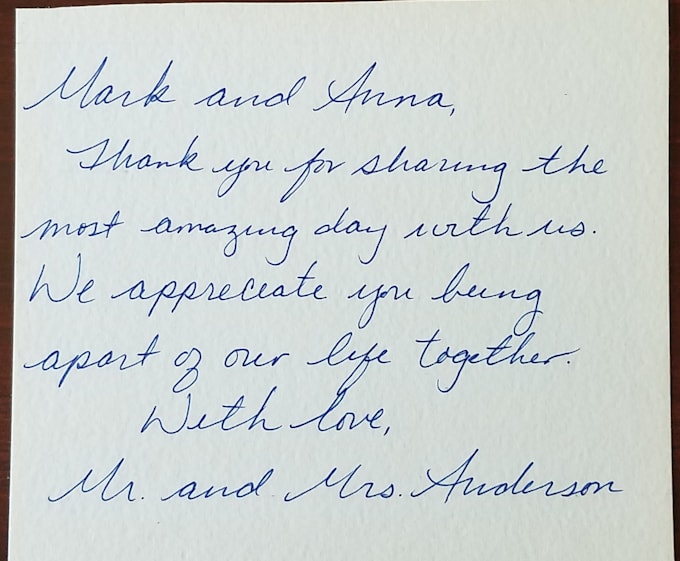 Mark and Anna,
Thank you for sharing the
most amazing day with us.
We appreciate you being
apart of our life together.
With love,
Mr. and Mrs. Anderson